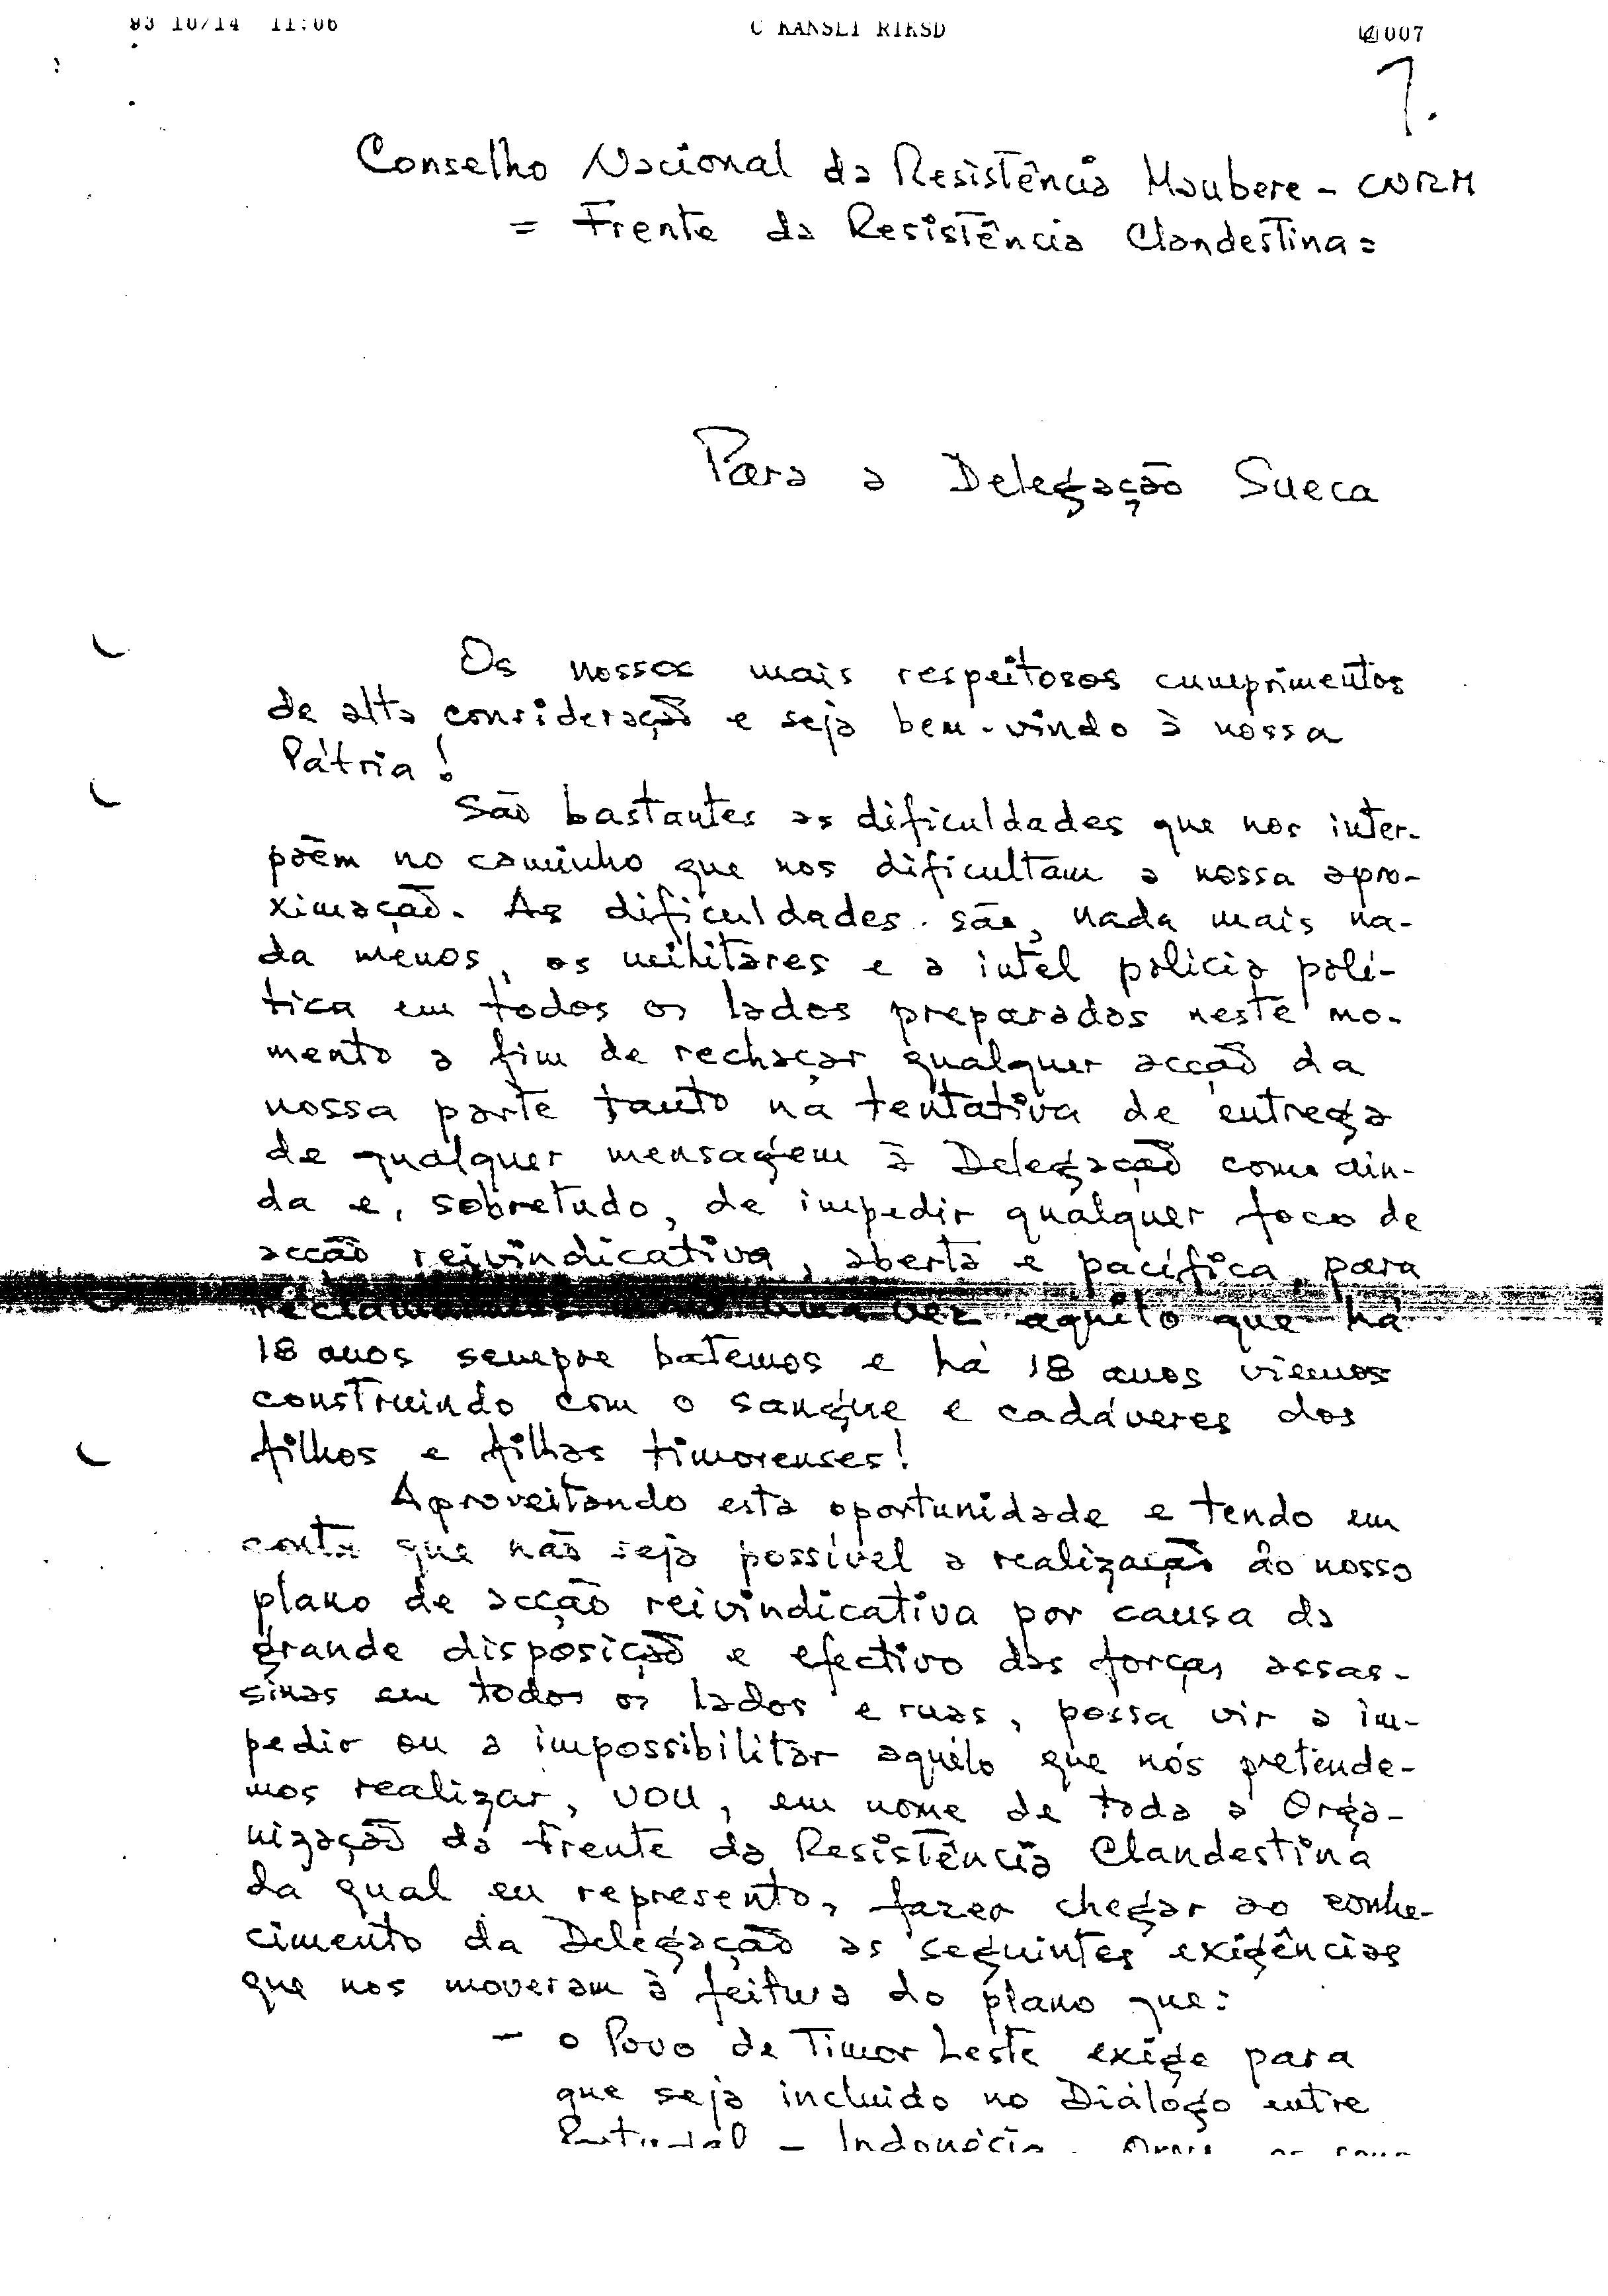 93 10/14 11:06 C KANSLI RIKSD 007
1.
Conselho Nacional da Resistência Maubere - CNRM
= Frente da Resistência Clandestina =
Para a Delegação Sueca
Os nossos mais respeitosos cumprimentos
de alta consideração e seja bem-vindo à nossa
Pátria!
São bastantes as dificuldades que nos inter-
põem no caminho que nos dificultam a nossa apro-
ximação. As dificuldades são, nada mais na-
da menos, os militares e a intel polícia polí-
tica em todos os lados preparados neste mo-
mento a fim de rechaçar qualquer acção da
nossa parte tanto na tentativa de entrega
de qualquer mensagem à Delegação como ain-
da e, sobretudo, de impedir qualquer foco de
acção reivindicativa, aberta e pacífica, para
uma vez aquilo que há
18 anos sempre batemos e há 18 anos viemos
construindo com o sangue e cadáveres dos
filhos e filhas timorenses!
Aproveitando esta oportunidade e tendo em
conta que não seja possível a realização do nosso
plano de acção reivindicativa por causa da
grande disposição e efectivo das forças assas-
sinas em todos os lados e ruas, possa vir a im-
pedir ou a impossibilitar aquilo que nós pretende-
mos realizar, vou, em nome de toda a Orga-
nização da Frente da Resistência Clandestina
da qual eu represento, fazer chegar ao conhe-
cimento da Delegação as seguintes exigências
que nos moveram à feitura do plano que:
- o Povo de Timor Leste exige para
que seja incluido no Diálogo entre
Portugal - Indonésia.